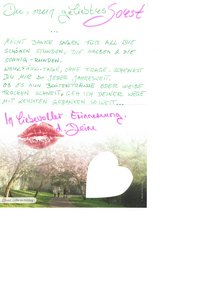 Du, mein geliebtes Soest
...
MÖCHT DANKE SAGEN FÜR ALL DIE
SCHÖNEN STUNDEN, DIE HALBEN & DIE
SONNIG-RUNDEN.
OHNE FRAGE, SCHENKST
DU MIR ZU JEDER JAHRESZEIT.
OB ES NUN BLÜTENTRÄUME ODER WEIßE
FLOCKEN SCHNEIT, GEH ICH DEINER WEGE
MIT REICHSTEN GEDANKEN SO WEIT...
In liebevoller Erinnerung,
Deine